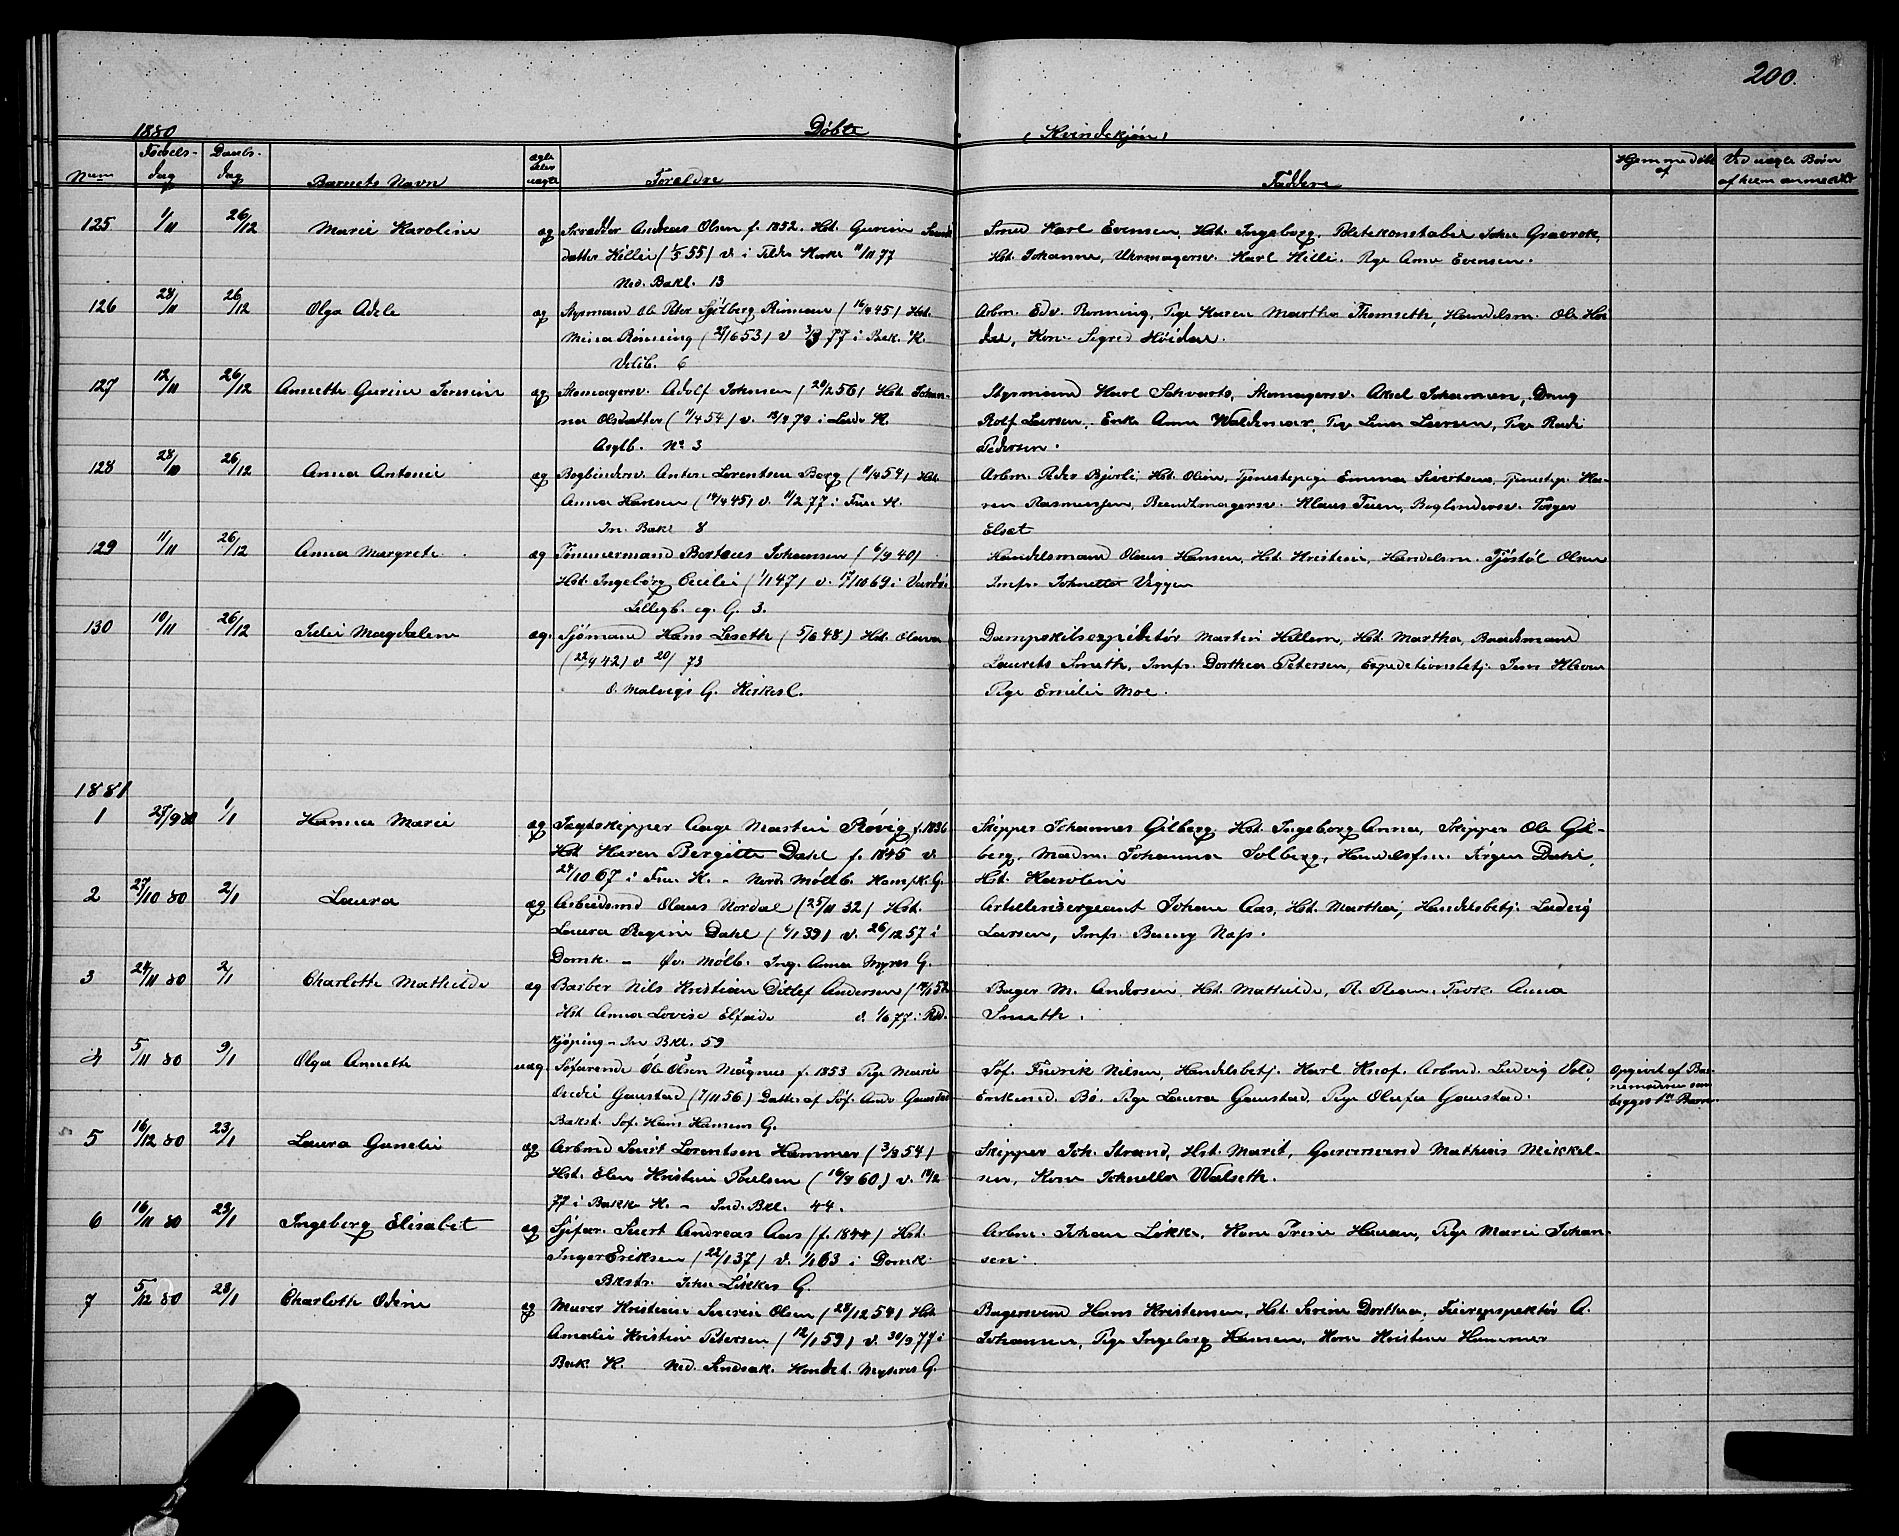 200.
1880 Døbte (Kvindekjøn)
Num Fødsels-dag Daabs-dag Barnets Navn ægte eller uægte Forældre Faddere Hjemmedøbt af Ved uægte Børn af hvem anmeldt
125 1/11 26/12 Marie Karoline æg Skrædder Andreas Olsen f. 1852. Hst. Gurine
datter Hillei (1/5 55) v. i Kirke 11/11 77
Ned. Bakl. 13
Smed Karl Evensen, Hst. Ingeborg, Politikonstabel John Gravrok,
Hst. Johanne, Uhrmagersv. Karl Hilli. Pige Anna Evensen.
126 28/11 26/12 Olga Adele æg Styrmand Ole Peter Sjølberg (16/9 45) Hst.
Mina Rønning (27/6 53) v. 3/3 77 i Bak. K.
6
Arbm. Edv. Rønning, Pige Karen Martha Thomseth, Handelsm. Ole Høi-
dal, Kone Sigred Høidal.
127 12/11 26/12 Annette Gurine Jensine æg Skomagersv. Adolf Johnsen (20/2 56) Hst. Johan-
na Olsdatter (11/4 54) v. 13/9 79 i Lade K.
Asylb. No 3
Styrmand Karl Schvarts, Skomagersv. Aksel Johansen, Dreng
Rolf Larsen, Enke Anna Waldemar, Pige Lina Larsen, Pige
Pedersen.
128 28/10 26/12 Anna Antonie æg Bogbindersv. Anton Lorentsen Berg (11/4 54) Hst.
Anna Hansen (14/4 45) v. 11/2 77 i Frue K.
In. Bakl 8
Arbm. Peder Bjerli, Hst. Oline, Tjenestepige Emma Sivertsen, Tjenestep. Ka-
ren Rasmussen, Buntmagersv. Klaus Tuen, Bogbindersv. Torger
Elset
129 11/11 26/12 Anna Margrete æg Tømmermand Bertæus Johansen (6/9 40)
Hst. Ingeborg Cecilie (1/1 47) v. 17/10 69 i Vardø.
Lillegb. eg. G. 3.
Handelsmand Olaus Hansen, Hst. Kristine, Handelsm. Tjøstøl Olsen
Jmfr. Johnetta Viggen
130 10/11 26/12 Julie Magdalene æg. Sjømand Hans Leseth (5/6 48) Hst. Olava
(22/4 42) v. 20/ 73
O. Malvigs G. Kirkesl.
Dampskibsexpeditør Martin Hillem, Hst. Martha, Baadsmand
Laurits Smeth, Jmfr. Dorthea Petersen, Expeditionsbetj. Jens Kleven
Pige Emilie Moe.
1881
1 27/9 80 1/1 Hanna Marie æg Jagtskipper Aage Martin Røvig f. 1836
Hst. Karen Bergitte Dahl f. 1845 v.
24/10 67 i Frue K. - Nerd. Møllb. G.
Skipper Johannes Gilberg, Hst. Ingeborg Anna, Skipper Ole Gil-
berg, Madm. Johanna Solberg, Handelsfm. Jørgen Dahl,
Hst. Karoline
2 27/10 80 2/1 Laura æg Arbeidsmd Olaus Nordal (25/11 32) Hst.
Laura Regine Dahl (6/1 39) v. 26/12 57 i
Domk. - Øv. Mølb. Ing. Anna Myres G.
Artillerisergeant Johan Aas, Hst. Martha, Handelsbetj. Ludvig
Larsen, Jmfr. Næss.
3 24/11 80 2/1 Charlotte Mathilde æg Barber Nils Kristian Ditlef Andersen (14/1 52
Hst. Anna Lovise Elfride v. 1/6 77 i Nord-
kjøping - In Bkl. 59
Bager M. Andersen, Hst. Mathilde, R. Anna
Smeth.
4 5/11 80 9/1 Olga Annette uæg. Søfarende Ole Olsen Magnus f. 1853 Pige Marie
Gaustad (7/11 56) Datter af Søf. And. Gaustad
Bakst. Søf. Hans Hansens G.
Søf. Fredrik Nilsen, Handelsbetj. Karl Knof. Arbmd. Ludvig Vold,
Enkemd. Bø. Pige Laura Gaustad, Pige Olufa Gaustad.
Opgivet af Bar-
nemoderen som
begges 1ste Barn.
5 16/12 80 23/1 Laura Gunelie æg Arbmd Sivert Lorentsen Hammer (3/2 54)
Hst. Elen Kristine Poulsen (16/9 60) v. 14/2
77 i Bakke K. - Ind. Bkl. 44.
Skipper Joh. Strand, Hst. Marit, Garversvend Mathias Mikkel-
sen, Kone Johnella Walseth.
6 16/11 80 23/1 Ingeborg Elisabet æg Sjøfar. Sivert Andreas Aas (f. 1844) Hst.
Inger Eriksen (22/1 37) v. 1/1 63 i Domk.
Bksts. John Løkkes G.
Arbm. Johan Løkke, Kone Trine Hauan, Pige Marie Johan-
sen.
7 5/12 80 23/1 Charlotte Odine æg Murer Kristian Severin Olsen (28/12 54) Hst.
Amalie Kristine Petersen (12/1 59) v. 30/9 77 i
Bak. K. Ned. Sindsak. Kondit. Meyeres G.
Bagersvend Hans Kristensen, Hst. Serine Dorthea, Feierinspektør A.
Johansen, Pige Ingeborg Hansen, Kone Kristine Hammer